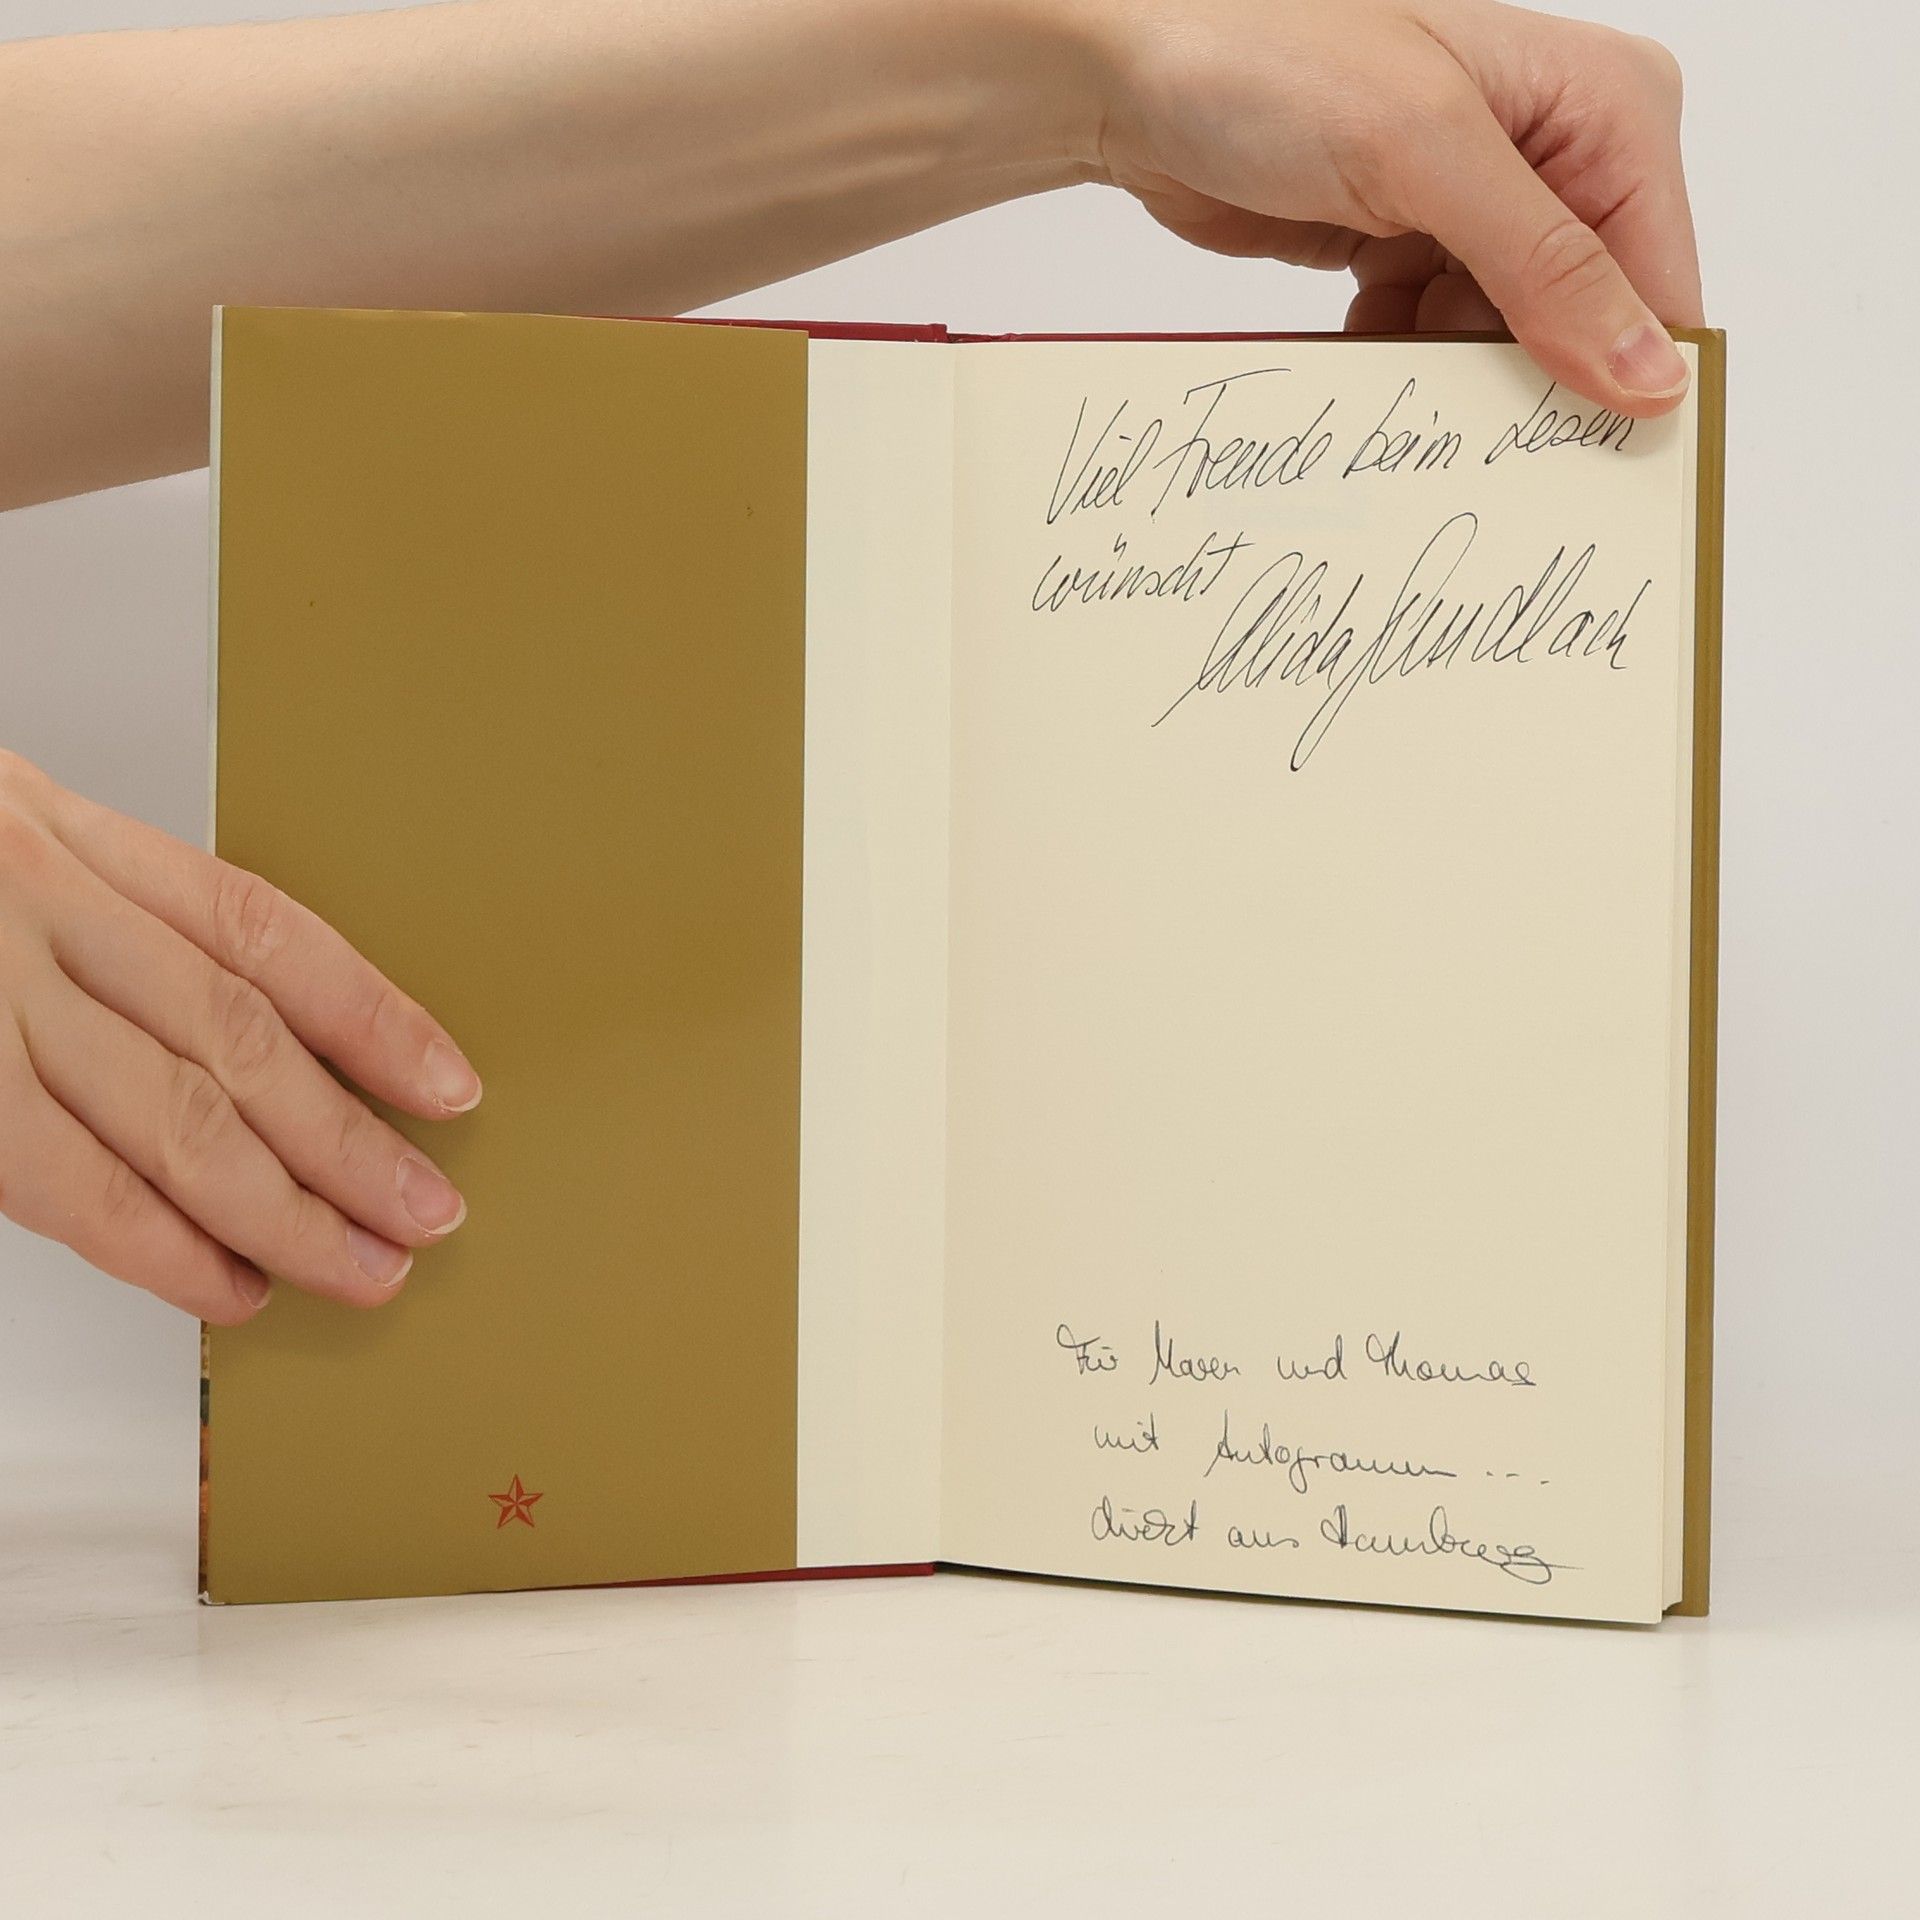 Viel Freude beim Lesen
wünscht Alida Gundlach
Für Maren und Thomas
mit Autogramm ...
direkt aus Hamburg